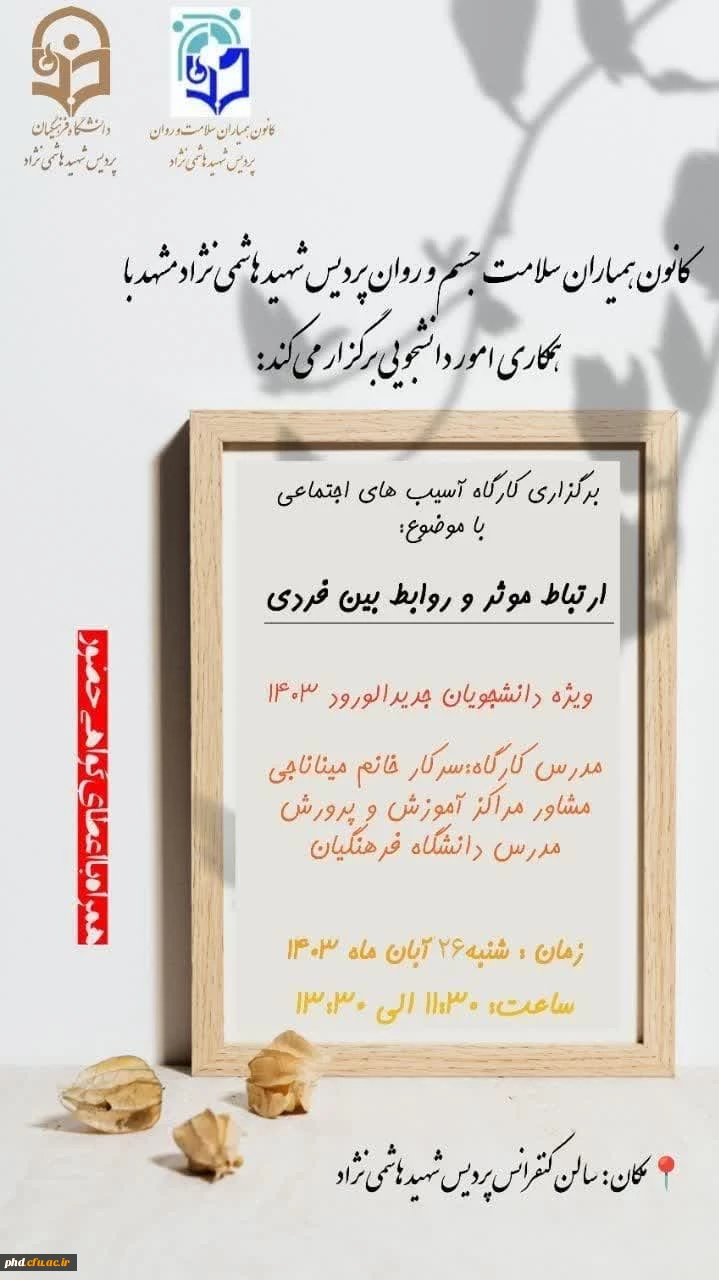 دانشگاه فرهنگیان
پردیس شهید هاشمی نژاد
کانون همیاران سلامت و روان
پردیس شهید هاشمی نژاد
کانون همیاران سلامت جسم و روان پردیس شهید هاشمی نژاد مشهد با
همکاری امور دانشجویی برگزار می کند:
برگزاری کارگاه آسیب های اجتماعی
با موضوع:
ارتباط موثر و روابط بین فردی
ویژه دانشجویان جدیدالورود ۱۴۰۳
مدرس کارگاه:سرکار خانم میناناجی
مشاور مراکز آموزش و پرورش
مدرس دانشگاه فرهنگیان
زمان : شنبه۲۶ آبان ماه ۱۴۰۳
ساعت: ۱۱:۳۰ الی ۱۳:۳۰
همراه با اعطای گواهی حضور
مکان: سالن کنفرانس پردیس شهید هاشمی نژاد
phd.cfu.ac.ir